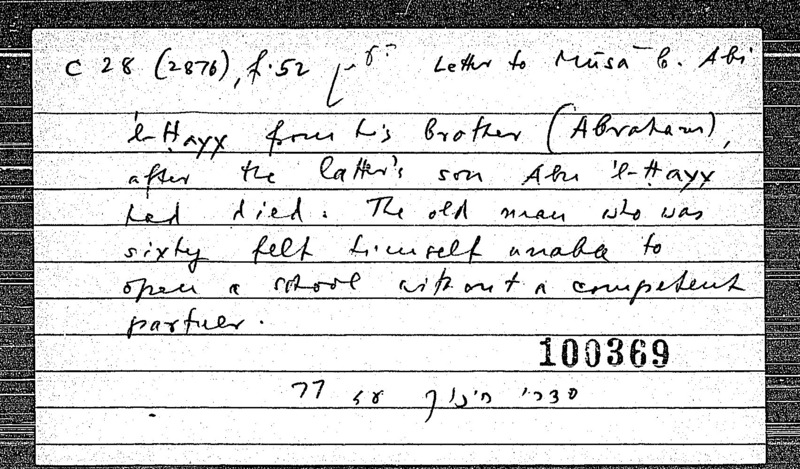 C 28 (2876), f. 52 Letter to Mūsā b. Abi
'l-Ḥayy from his brother (Abraham),
after the latter's son Abu 'l-Ḥayy
had died. The old man who was
sixty felt himself unable to
open a school without a competent
partner.
100369
סדרי חינוך עמ 77